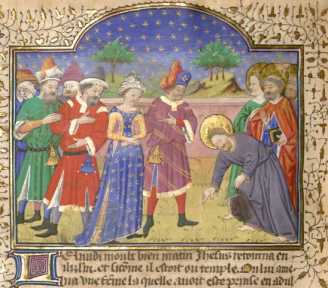 Lundi moult bien matin Ihesus retourna en
iħrlm. et sicōme il estoit ou temple. On lui ame
na vne feme la quelle auoit este prinse en adul